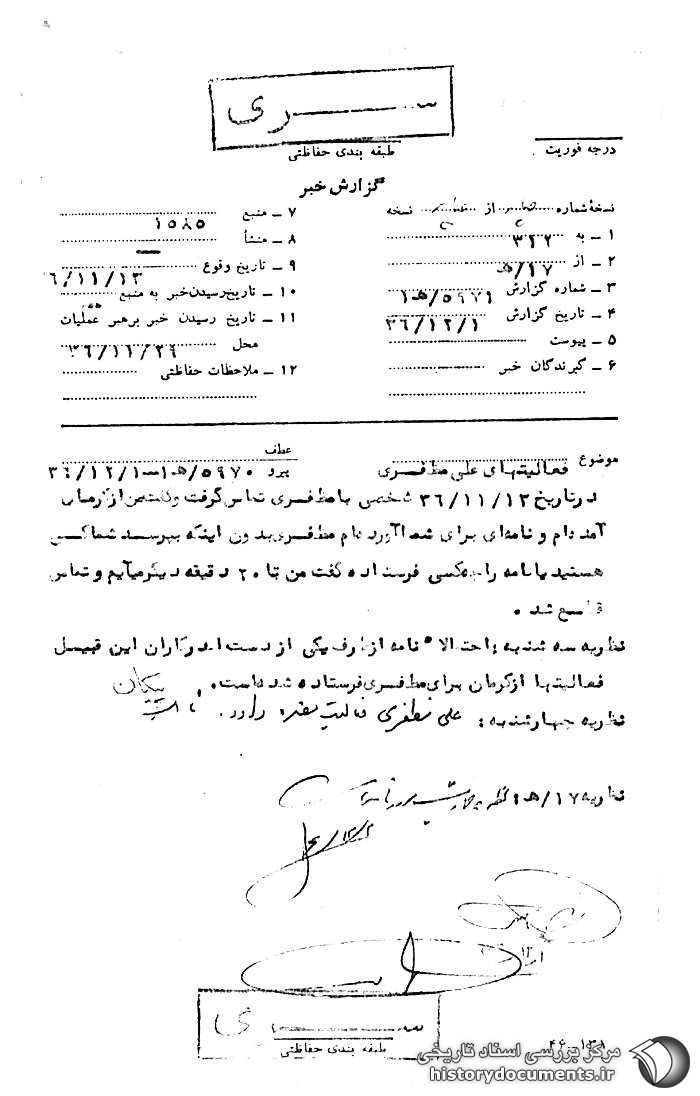 سری
طبقه بندی حفاظتی
درجه فوریت
گزارش خبر
نسخهٔ شماره از نسخه
۱ ــ به ۳۱۲
۲ ــ از ۱۷/ﻫ
۳ ــ شماره گزارش ۵۹۷۱/ﻫ۱
۴ ــ تاریخ گزارش ۳۶/۱۲/۱
۵ ــ پیوست
۶ ــ گیرندگان خبر
۷ ــ منبع ۱۵۸۵
۸ ــ منشأ
۹ ــ تاریخ وقوع ۶/۱۱/۱۳
۱۰ ــ تاریخ رسیدن خبر به منبع
۱۱ ــ تاریخ رسیدن خبر برهبر عملیات
محل ۳۶/۱۱/۲۹
۱۲ ــ ملاحظات حفاظتی
موضوع فعالیتهای علی مظفری
عطف
پیرو ۵۹۷۰/ﻫ۱ــ۳۶/۱۲/۱
درتاریخ ۳۶/۱۱/۱۳ شخصی با مظفری تماس گرفت و گفت من از کرمان
آمده‌ام و نامه‌ای برای شما آورده‌ام مظفری بدون اینکه بپرسد شما کسی
هستید یا نامه را چه کسی فرستاده گفت من تا ۲۰ دقیقه دیگر میآیم و تماس
قطع شد .
نظریه سه شنبه : احتمالا" نامه از طرف یکی از دست اندرکاران این قبیل
فعالیتها از کرمان برای مظفری فرستاده شده است.
نظریه چهارشنبه : علی مظفری فعالیت مضره دارد. پیکان
نظریه ۱۷/ﻫ :
سری
طبقه بندی حفاظتی
مرکز بررسی اسناد تاریخی
historydocuments.ir